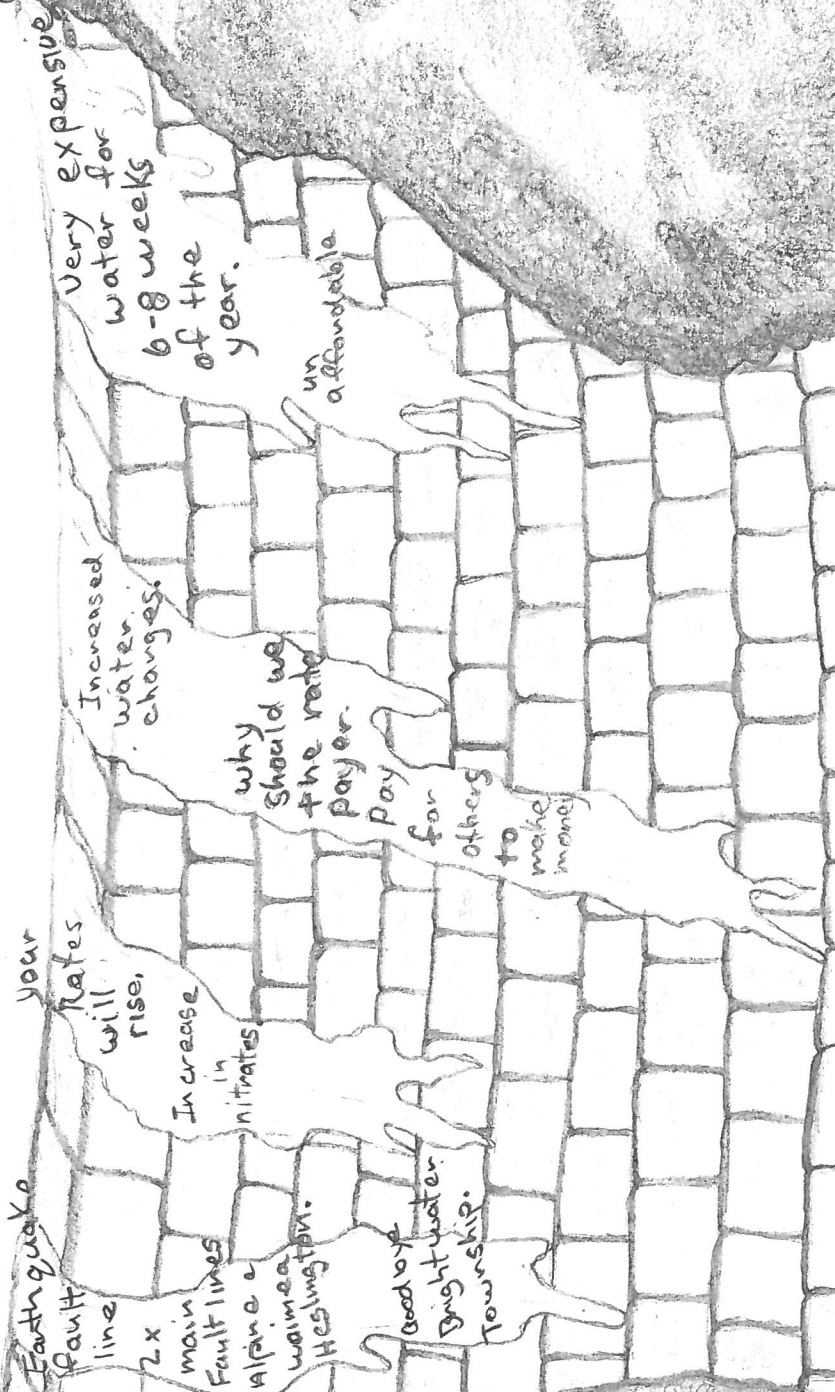 Earthquake
fault
line
2x
main
Fault lines
Alpine e
waimea
Heslington.
Goodbye
Brightwater
Township.
your
Rates
will
rise.
Increase
in
nitrates.
Increased
water.
charges.
why
should we
the rate
payer.
pay
for
others
to
make
money
Very expensive
water for
6-8 weeks
of the
year.
un
affordable